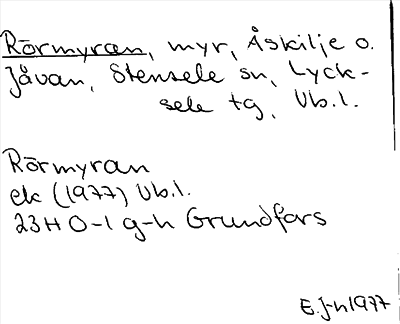 Rörmyran, myr, Åskilje o.
Jåvan, Stensele sn, Lyck-
sele tg, Vb.l.
Rörmyran
ek (1977) Vb.l.
23H 0-1 g-h Grundfors
E.J-n 1977